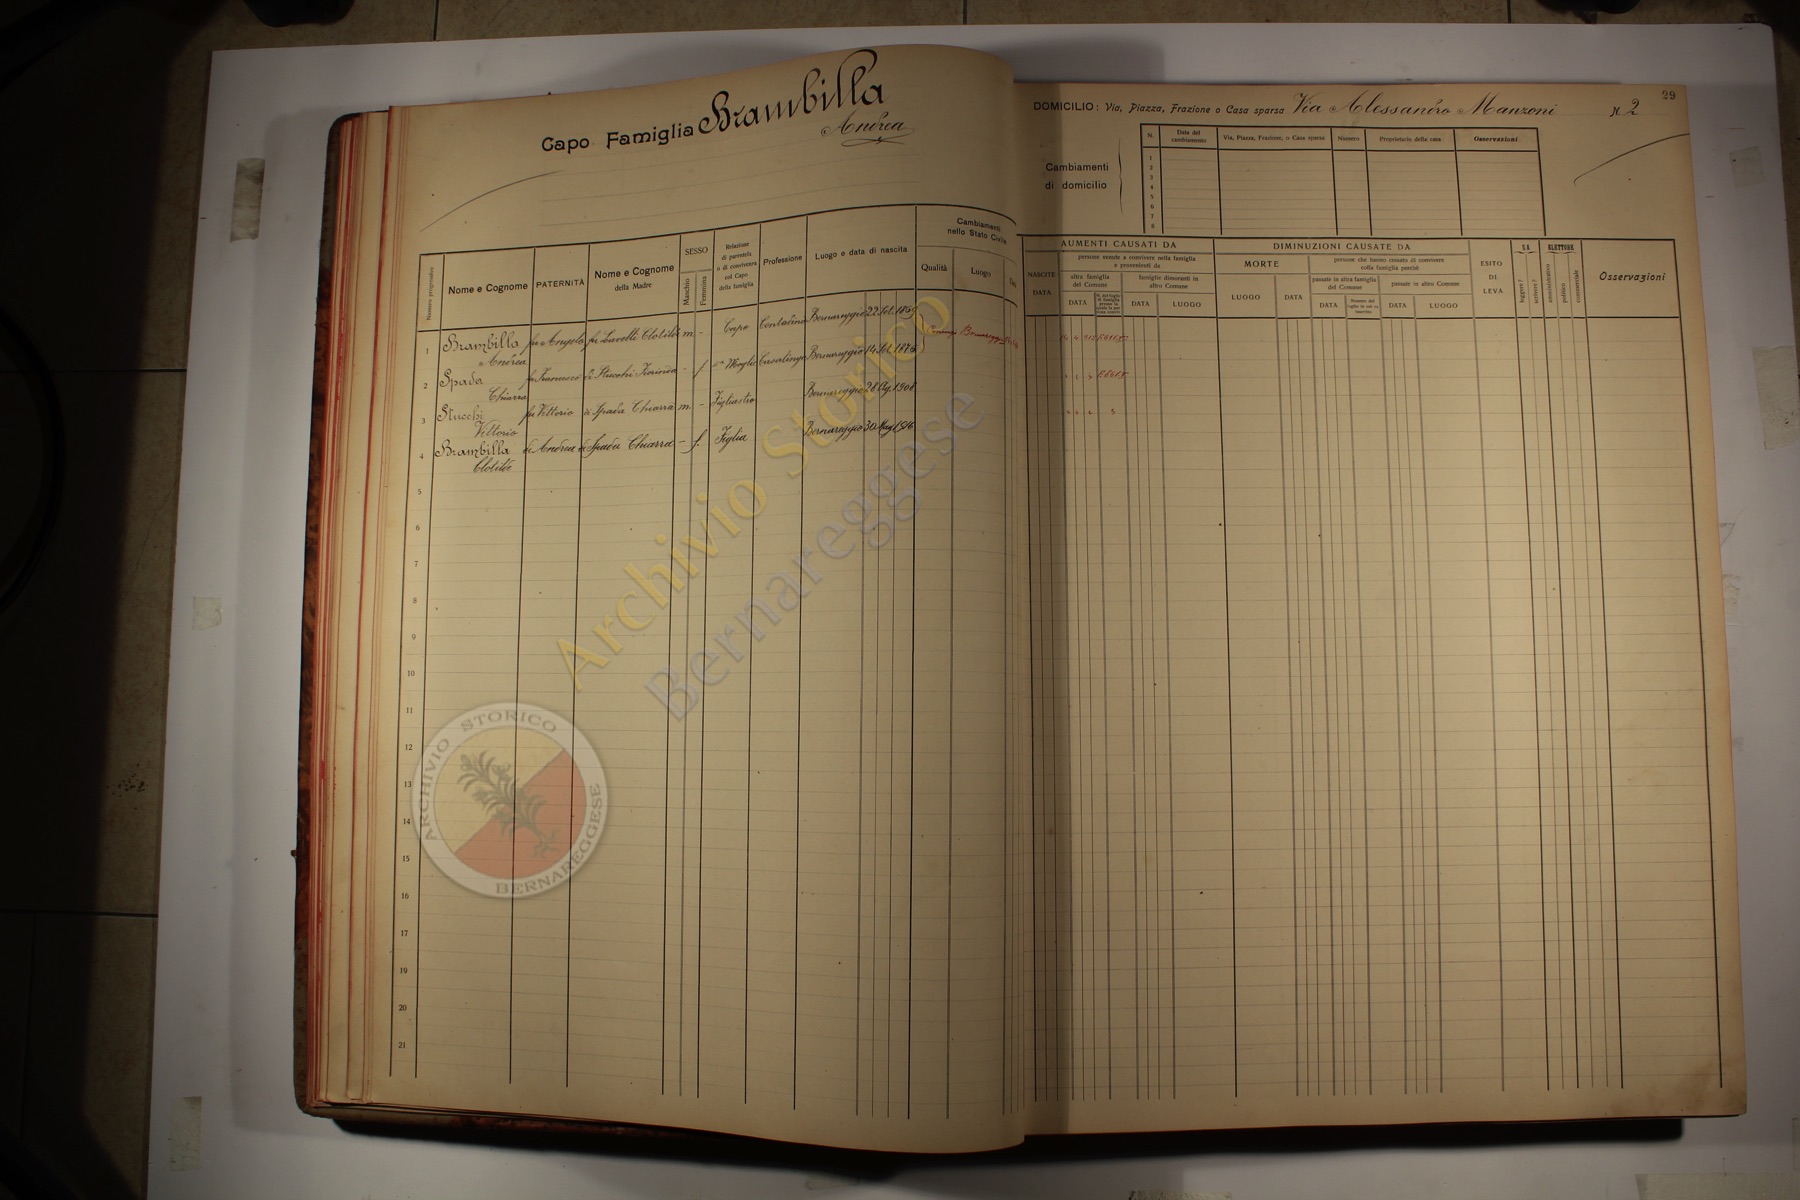 Capo Famiglia Brambilla
Andrea
Numero progressivo
Nome e Cognome
PATERNITÀ
Nome e Cognome
della Madre
SESSO
Maschio
Femmina
Relazione
di parentela
o di convivenza
col Capo
della famiglia
Professione
Luogo e data di nascita
Cambiamenti
nello Stato Civile
Qualità
Luogo
1 Brambilla fu Angelo fu Lavelli Clotilde m - Capo Contadino Bernareggio 22 Set.
Andrea
2 Spada fu Francesco di Stucchi - f Moglie Casalinga Bernareggio 14
Chiara
3 Stucchi fu Vittorio di Spada Chiarra m - Figliastro Bernareggio 28 Ag. 1908
Vittorio
4 Brambilla di Andrea di Spada Chiarra - f. Figlia Bernareggio 30 Mag. 1916
Clotilde
5
6
7
8
9
10
11
12
13
14
15
16
17
18
19
20
21
29
DOMICILIO: Via, Piazza, Frazione o Casa sparsa Via Alessandro Manzoni N 2
Cambiamenti
di domicilio
N.
Data del
cambiamento
Via, Piazza, Frazione, o Casa sparsa
Numero
Proprietario della casa
Osservazioni
1
2
3
4
5
6
7
8
AUMENTI CAUSATI DA
NASCITE
DATA
persone venute a convivere nella famiglia
e provenienti da
altra famiglia
del Comune
DATA
famiglie dimoranti in
altro Comune
DATA
LUOGO
DIMINUZIONI CAUSATE DA
MORTE
LUOGO
DATA
persone che hanno cessato di convivere
colla famiglia perchè
passate in altra famiglia
del Comune
DATA
passate in altro Comune
DATA
LUOGO
ESITO
DI
LEVA
SA
leggere?
scrivere?
ELETTORE
amministrativo
politico
commerciale
Osservazioni
Archivio Storico
Bernareggese
ARCHIVIO STORICO
BERNAREGGESE